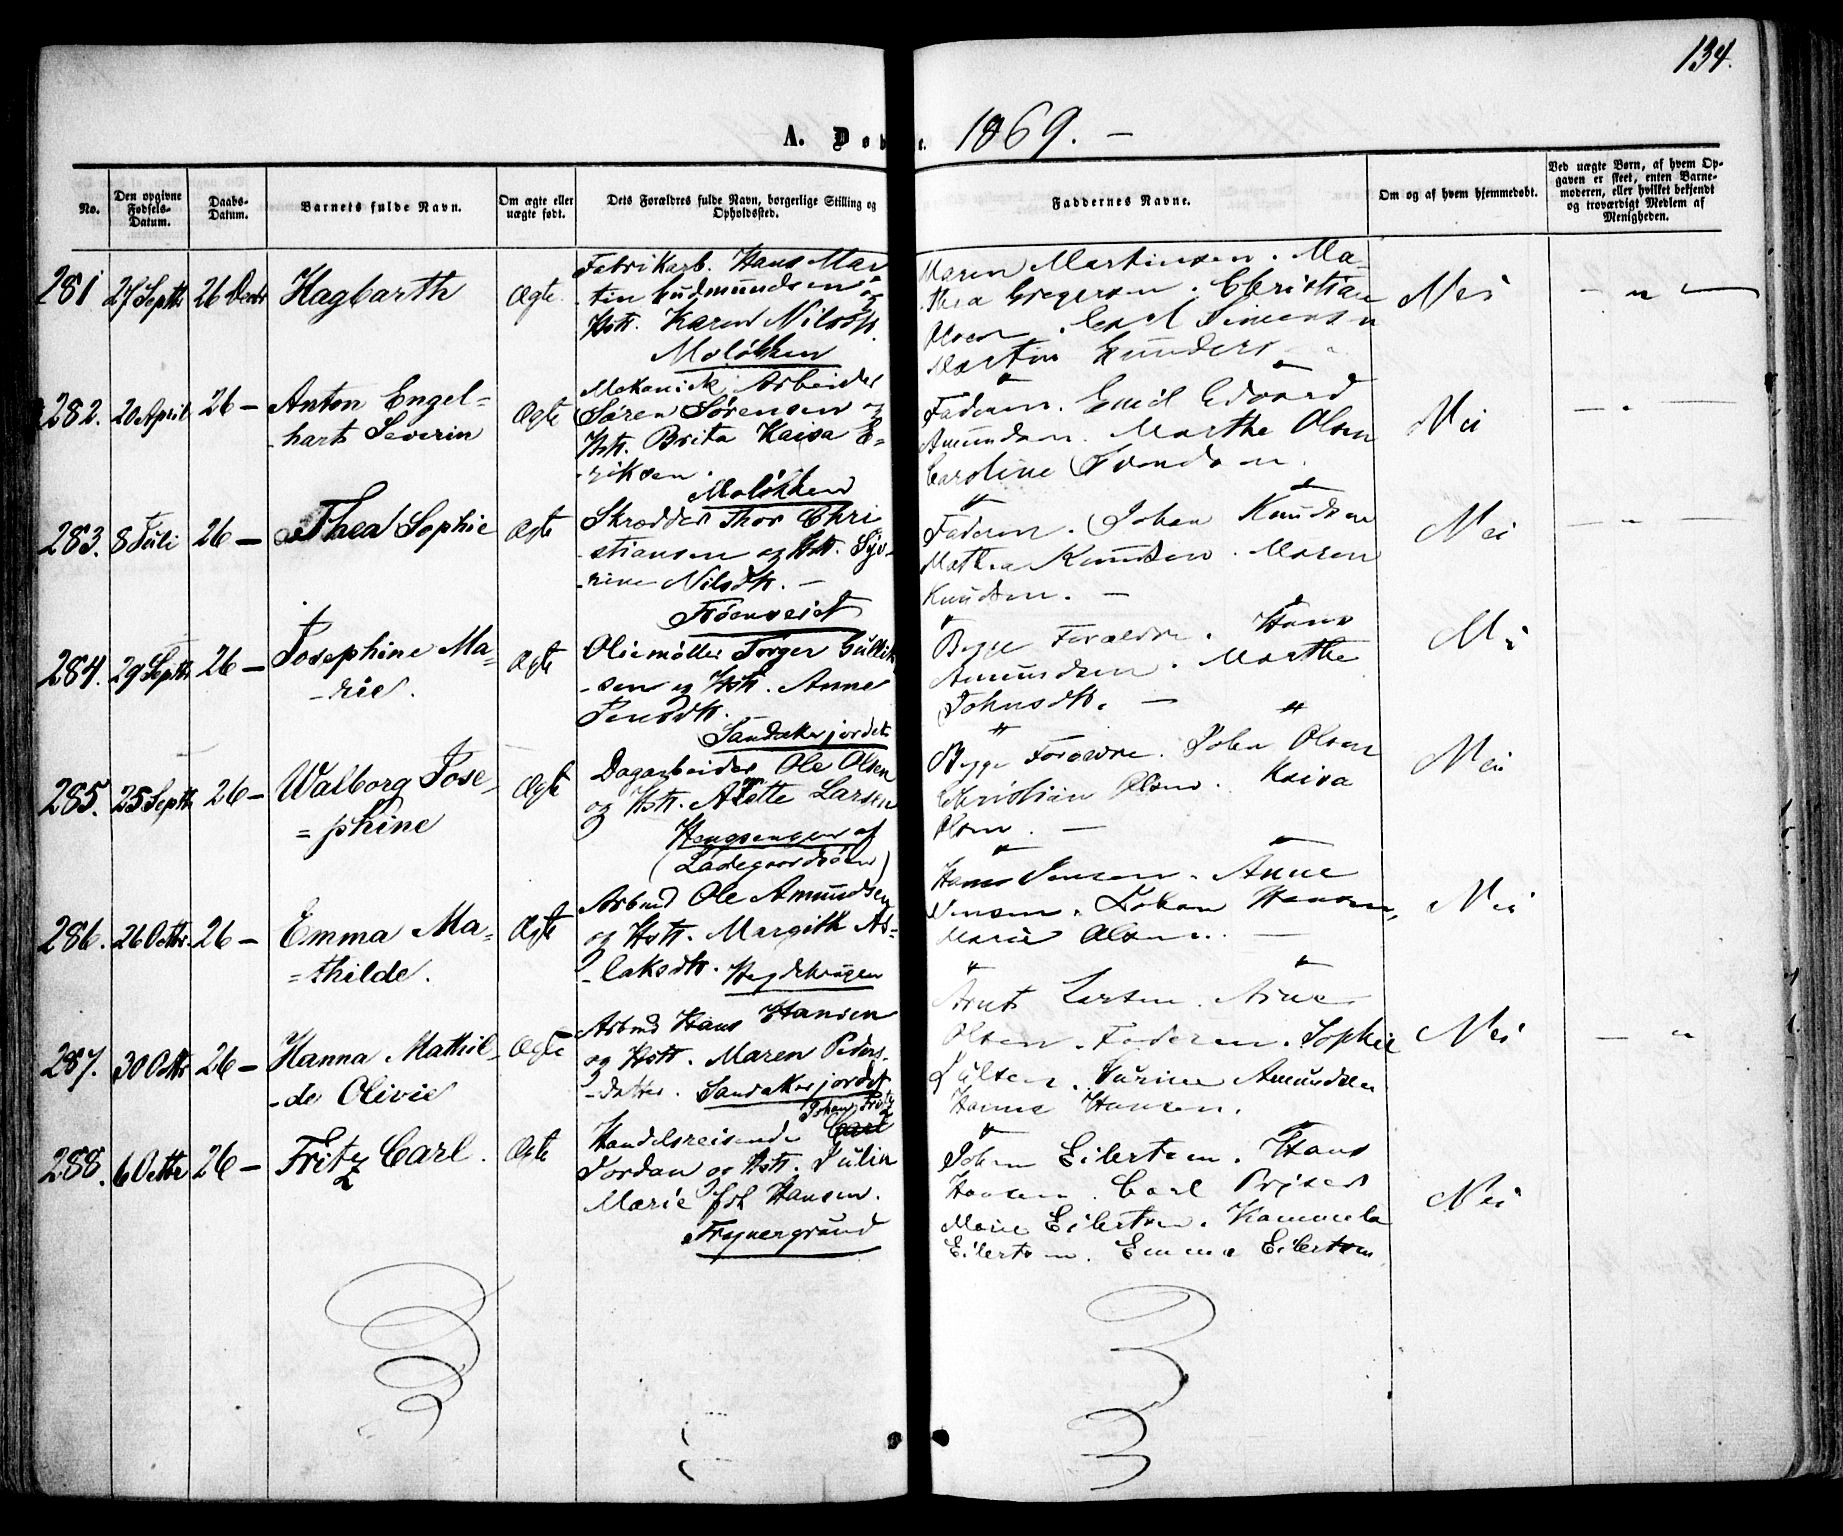 134.
A. Døbte. 1869. —
No.
Den opgivne Fødsels-Datum.
Daabs-Datum.
Barnets fulde Navn.
Om ægte eller uægte født.
Dets Forældres fulde Navn, borgerlige Stilling og Opholdssted.
Faddernes Navne.
Om og af hvem hjemmedøbt.
Ved uægte Børn, af hvem Opgaven er skeet, enten Barnemoderen, eller hvilket bekjendt og troværdigt Medlem af Menigheden.
281 27 Septbr 26 Decbr Hagbarth Ægte.
Fabrikarb. Hans Mar
-tin Gudmundsen og
Hstr. Karen Nilsdtr.
Moløkken
Maren Martinsen. Ma-
thea Gregersen. Christian
Olsen. Carl Simensen
Martin Gunders
Nei — " —
282. 20 April 26 — Anton Engel=
-hart Severin
Ægte
Mekanisk Arbeider
Søren Sørensen og
Hstr. Brita Kaisa E-
-riksen.
Moløkken
Faderen. Emil Edvard
Amundsen. Marthe Olsen
Caroline Svendsen.
Nei — " —
283. 8 Juli 26 — Thea Sophie Ægte
Skrædder Thor Chri
-stiansen og Hstr. Syv-
-rine Nilsdtr. —
Frøenveiet
Faderen. Johan Knudsen
Mathea Knudsen. Maren
Knudsen. —
Nei — " —
284. 29 Septbr 26 — Josephine Ma-
-rie.
Ægte
Oliemøller Torger Gullik
-sen og Hstr. Anne
Jensdtr.
Sandakerjordet
Begge Forældre. Hans
Amundsen. Marthe
Johnsdtr. —
Nei
285. 25 Septbr 26 — Walborg Jose-
=phine
Ægte
Dagarbeider Ole Olsen
og Hstr. Anette Larsen
Hengsengen af
(Ladegaardsøen)
Begge Forældre. Johan Olsen
Christian Olsen. Kaisa
Olsen. —
Nei
286. 26 Octbr. 26 — Emma Ma=
=thilde.
Ægte
Arbmd Ole Amundsen
og Hstr. Margith As=
-laksdtr. Hegdehaugen
Hans Jensen. Anne
Jensen. Johan Hansen,
Marie Olsen. —
Nei
287. 30 Octbr 26 — Hanna Mathil-
-de Olivie
Ægte
Arbmd Hans Hansen
og Hstr. Maren Peders-
-datter. Sandakerjordet
Arnt Larsen. Arne
Olsen. Faderen. Sophie
Julsen. Surine Amundsen
Hanne Hansen.
Nei — "
288. 6 Octbr 26 — Fritz Carl. Ægte
Johan Fritz
Handelsreisende Carl
Jordan og Hstr. Julin
Marie fdt Hansen.
Frognergrund
Johan Eilertsen. Hans
Hansen. Carl
Marie Eilertsen. Kammila
Eilertsen. Emma Eilertsen
Nei